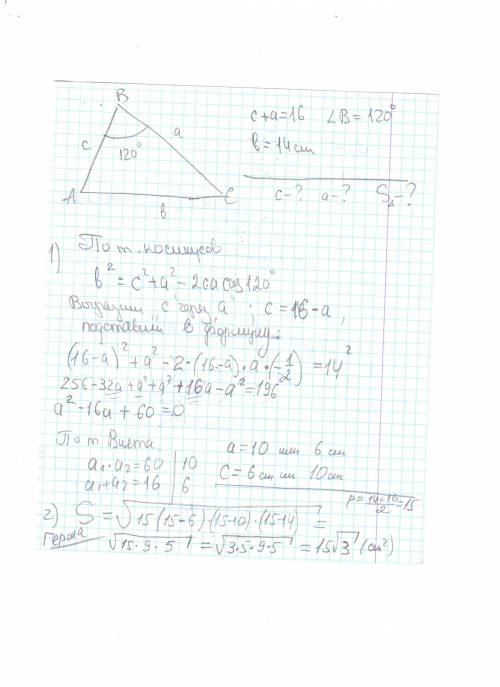 B
c+a=16 ∠B=120°
c
a
120°
в=14см
A
C
в
c-? a-? S△-?
1) По т. косинусов
в²=c²+a²-2ca cos120°
Выразим „c" через „a" ; c=16-a,
подставим в формулу:
(16-a)²+a²-2·(16-a)·a·(-1/2)=14²
256-32a+a²+a²+16a-a²=196
a²-16a+60=0
По т. Виета
a₁·a₂=60 | 10
a₁+a₂=16 | 6
a=10 или 6 см
c=6 см или 10см
p=(14+16)/2=15
2) S=√15(15-6)(15-10)·(15-14)=
Герона
√15·9·5=√3·5·9·5=15√3 (см²)